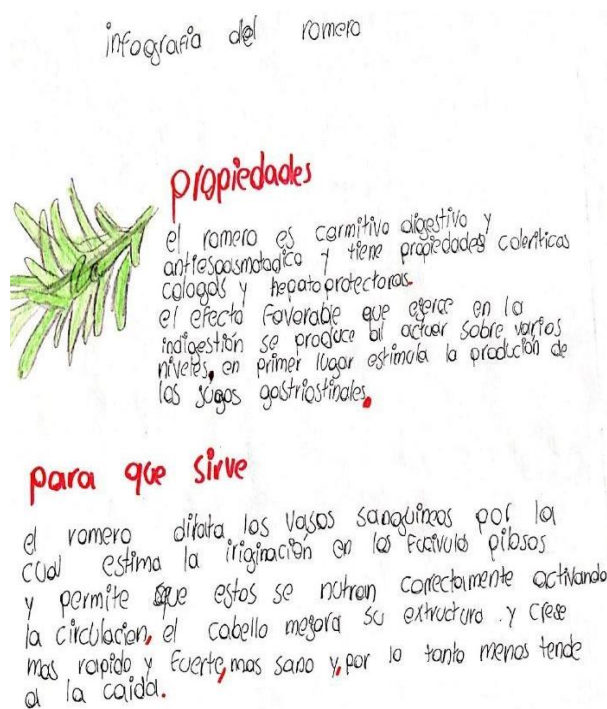 infografía del romero
propiedades
el romero es carmitivo digestivo y
antiespasmotadico y tiene propiedades coleriticas
cologols y hepatoprotectoras.
el efecto favorable que ejerce en la
indigestión se produce al actuar sobre varios
niveles, en primer lugar estimola la produción de
los jugos gastriostinales.
para que sirve
el romero dilata los vasos sanguineos por la
cual estima la iriginación en los fucivulo pilosos
y permite que estos se notren correctamente activando
la circulacion, el cabello megora su extructura y crese
mas rapido y fuerte, mas sano y, por lo tanto menos tende
a la caida.